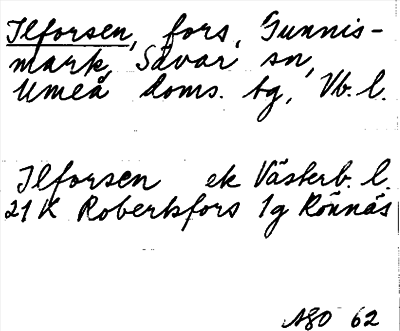 Ilforsen, fors, Gunnis-
mark, Sävar sn,
Umeå doms. tg, Vb. l.
Ilforsen ek Västerb. l.
21K Robertsfors 1g Rönnäs
ASO 62